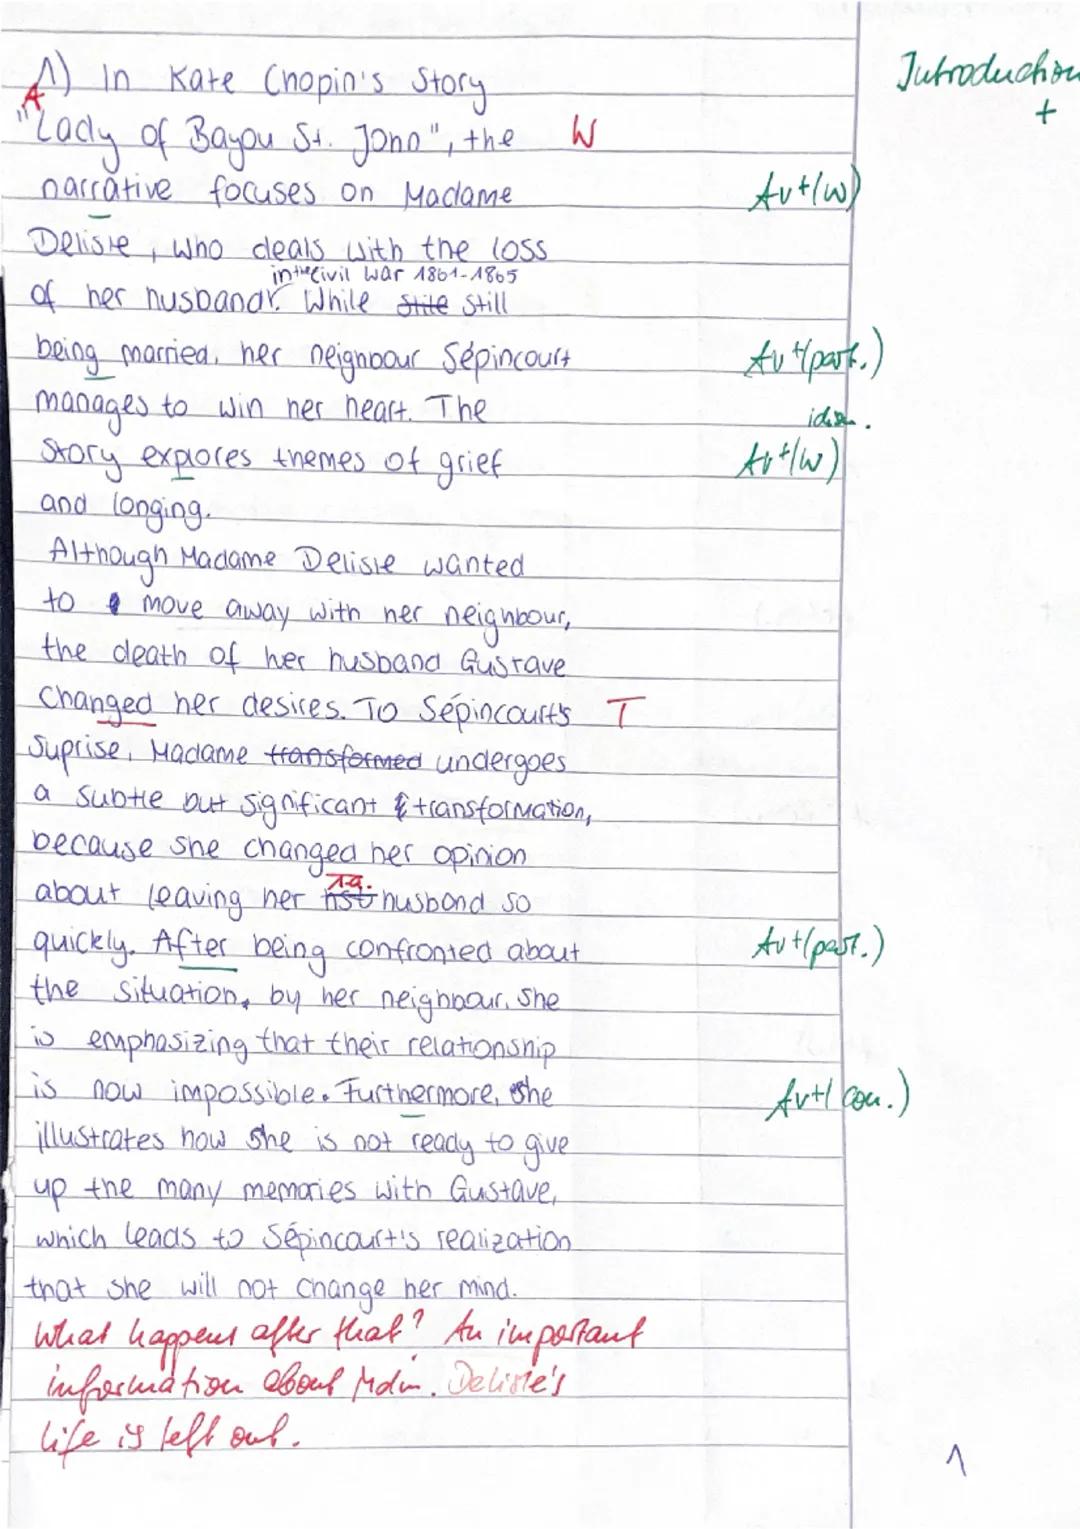 Introduction
+
1) In Kate Chopin's Story
A
"Lady of Bayou St. John", the W
narrative focuses on Madame Av+(w)
Delisle, who deals with the loss
in the Civil War 1861-1865
of her husband. While stite still
being married, her neighbour Sépincourt Av+(part.)
manages to win her heart. The
story explores themes of grief Av+(w)
and longing.
Although Madame Delisle wanted
to move away with her neighbour,
the death of her husband Gustave
changed her desires. To Sépincourt's T
suprise, Madame transformed undergoes
a subtle but significant transformation,
because she changed her opinion
about leaving her husband so
quickly. After being confronted about Av+(part.)
the situation, by her neighbour, she
is emphasizing that their relationship
is now impossible. Furthermore, she Av+(con.)
illustrates how she is not ready to give
up the many memories with Gustave,
which leads to Sépincourt's realization
that she will not change her mind.
What happens after that? An important
information about Mdm. Delisle's
life is left out.
1